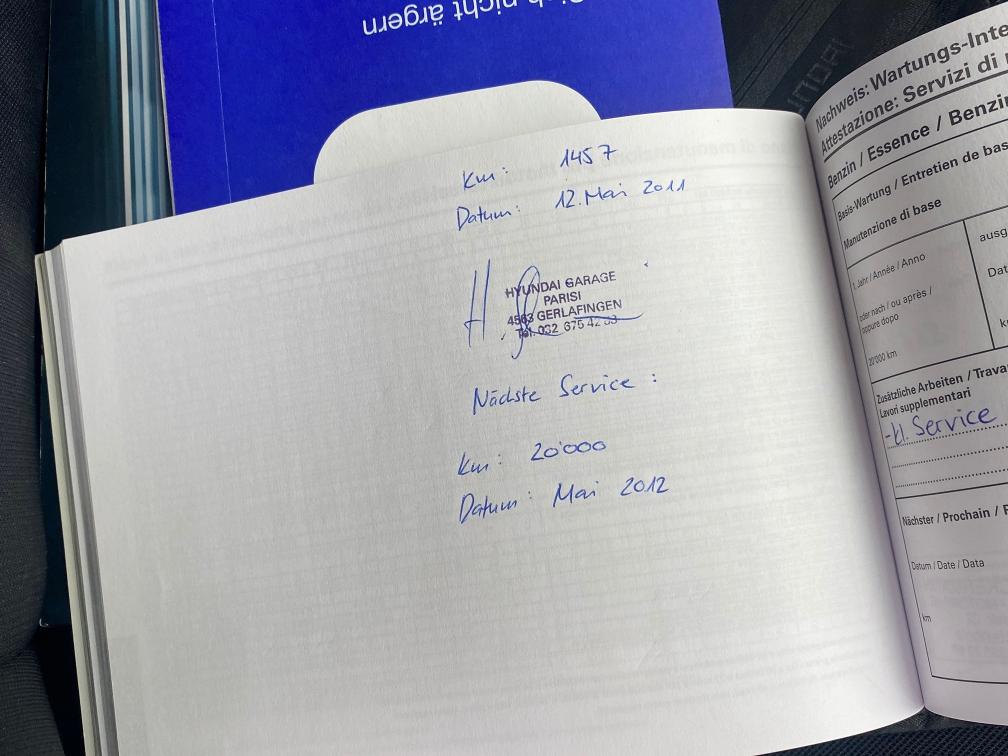 nicht ärgern
Km: 1457
Datum: 12. Mai 2011
HYUNDAI GARAGE
PARISI
4563 GERLAFINGEN
Tel. 032 675 42
Nächste Service:
Km: 20'000
Datum: Mai 2012
Nachweis: Wartungs-Inte
Attestazione: Servizi di
Benzin / Essence / Benzin
Basis-Wartung / Entretien de bas
Manutenzione di base
1. Jahr / Année / Anno
oder nach / ou après /
oppure dopo
20'000 km
ausg
Dat
k
Zusätzliche Arbeiten / Trava
Lavori supplementari
- kl. Service
Nächster / Prochain / P
Datum / Date / Data
km